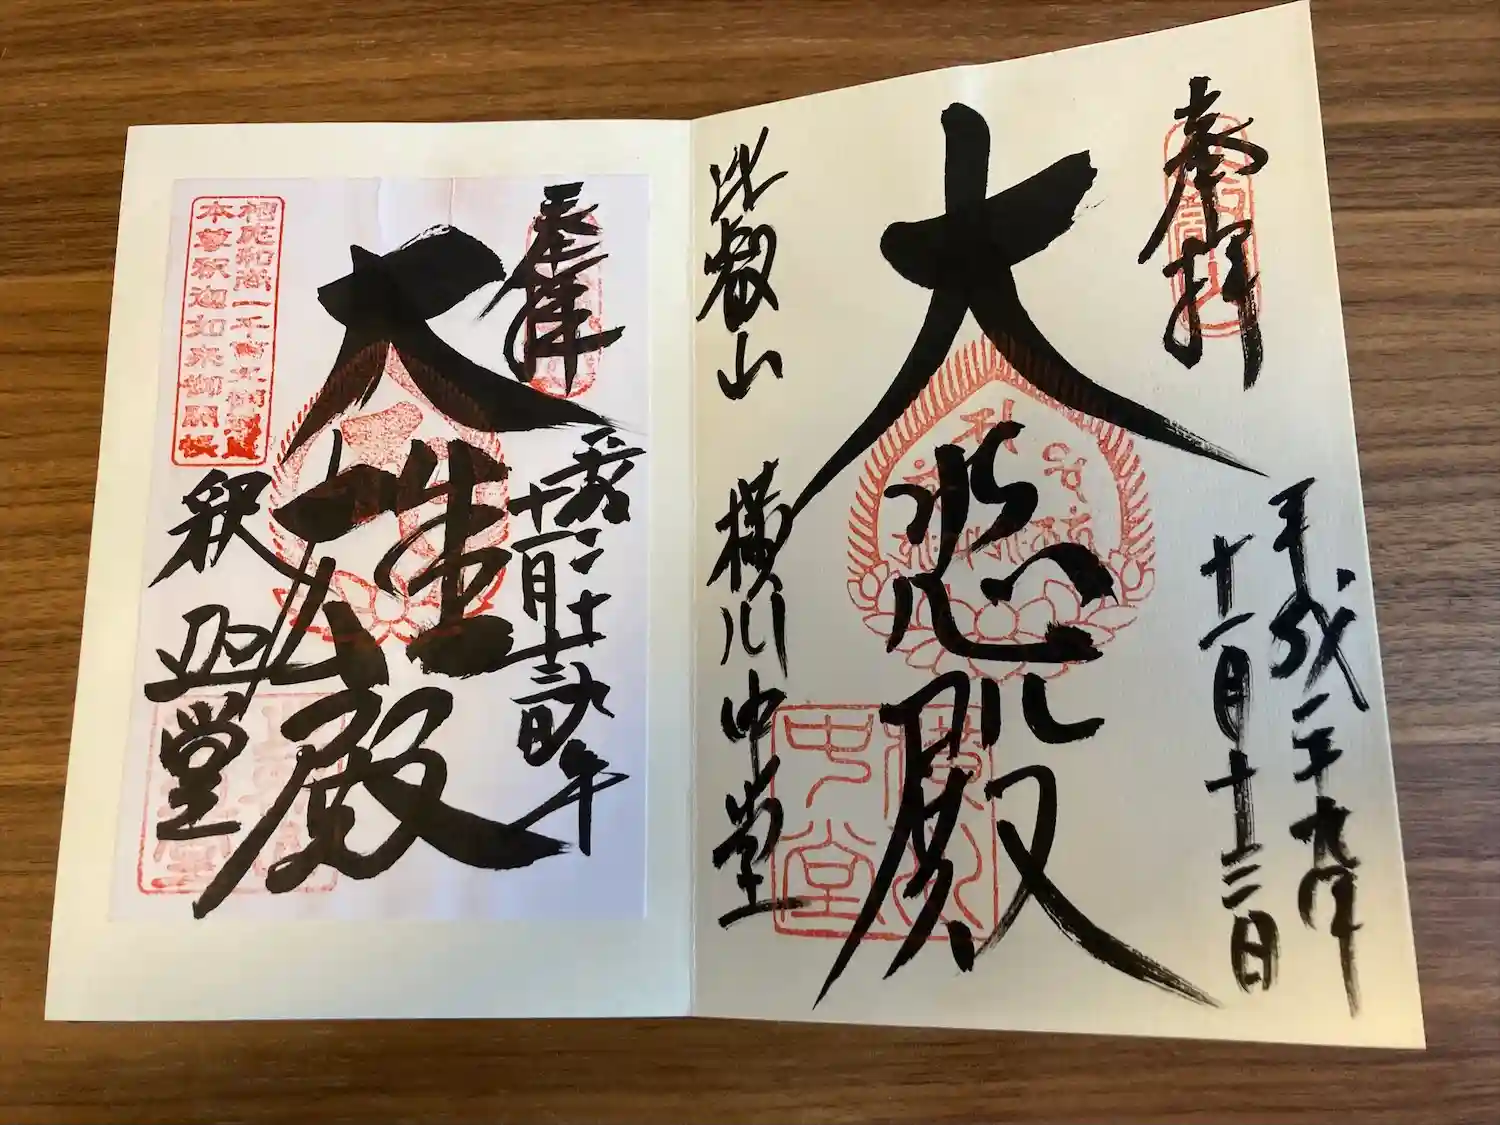 奉拝
平成二十九年
十一月十二日
大悲殿
比叡山 横川中堂
横川中堂
奉拝
平成二十九年
十一月十二日
大雄殿
釈迦堂
相応和尚一千百年御遠忌
本尊釈迦如来御開帳